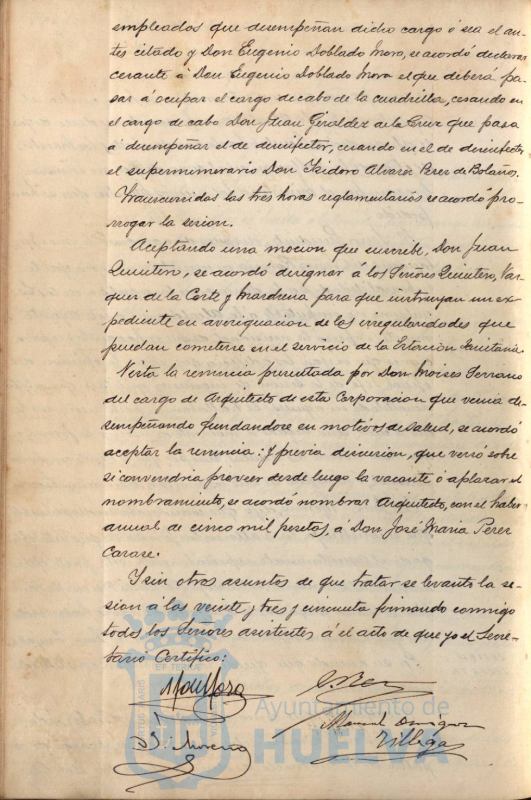 empleados que desempeñan dicho cargo ó sea el an-
tes citado y Don Eugenio Doblado Mora, se acordó declarar
cesante á Don Eugenio Doblado Mora el que deberá pa-
sar á ocupar el cargo de cabo de la cuadrilla, cesando en
el cargo de cabo Don Juan Giraldez de la Cruz que pasa
á desempeñar el de desinfector, cesando en el de desinfector
el supernumerario Don Isidoro Alvarez Perez de Bolaños.
Transcurridas las tres horas reglamentarias se acordó pro-
rrogar la sesion.
Aceptando una mocion que suscribe, Don Juan
Quintero, se acordó designar á los Señores Quintero, Vaz-
quez de la Corte y Marchena para que instruyan un ex-
pediente en averiguacion de las irregularidades que
puedan cometerse en el servicio de la Estacion Sanitaria.
Vista la renuncia presentada por Don Moises Serrano
del cargo de Arquitecto de esta Corporacion que venia de-
sempeñando fundandose en motivos de salud, se acordó
aceptar la renuncia: y previa discusion, que versó sobre
si convendria proveer desde luego la vacante ó aplazar el
nombramiento, se acordó nombrar Arquitecto, con el haber
anual de cinco mil pesetas, á Don José Maria Perez
Carasa.
Y sin otros asuntos de que tratar se levantó la se-
sion á las veinte y tres y cincuenta firmando conmigo
todos los Señores asistentes á el acto de que yo el Secre-
tario Certifico:
Ayuntamiento de
HUELVA
Manuel
Villega
Moreno